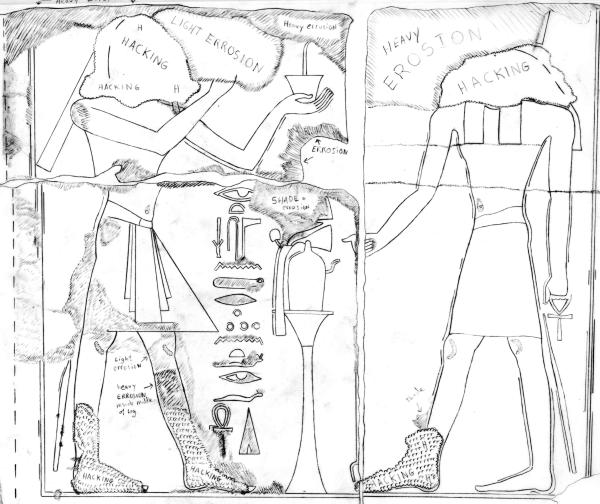 HEAVY
H
HACKING
HACKING
H
LIGHT ERROSION
Heavy errosion
ERROSION
SHADE +
errosion
Light
errosion
heavy
ERROSION
inside middle
of leg
HACKING
HACKING
HEAVY
EROSION
HACKING